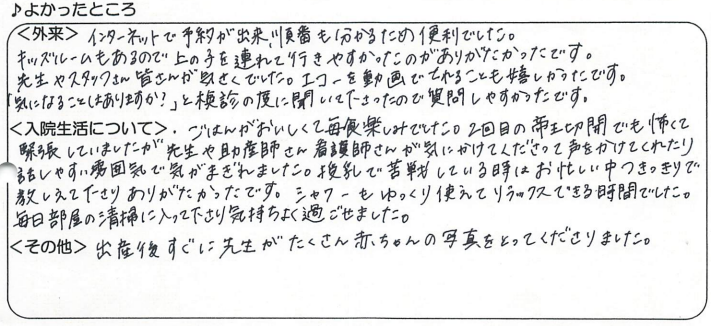 ♪よかったところ
＜外来＞ インターネットで予約が出来、順番も分かるため便利でした。
キッズルームもあるので上の子を連れて行きやすかったのがありがたかったです。
先生やスタッフさん皆さんが気さくでした。エコーを動画でとれることも嬉しかったです。
「気になることはありますか？」と検診の度に聞いて下さったので質問しやすかったです。
＜入院生活について＞・ごはんがおいしくて毎食楽しみでした。2回目の帝王切開でも怖くて
緊張していましたが先生や助産師さん看護師さんが気にかけてくださって声をかけてくれたり
話しやすい雰囲気で気がまぎれました。授乳で苦戦している時はお忙しい中つきっきりで
教しえて下さりありがたかったです。シャワーもゆっくり使えてリラックスできる時間でした。
毎日部屋の清掃に入って下さり気持ちよく過ごせました。
＜その他＞ 出産後すぐに先生がたくさん赤ちゃんの写真をとってくださりました。